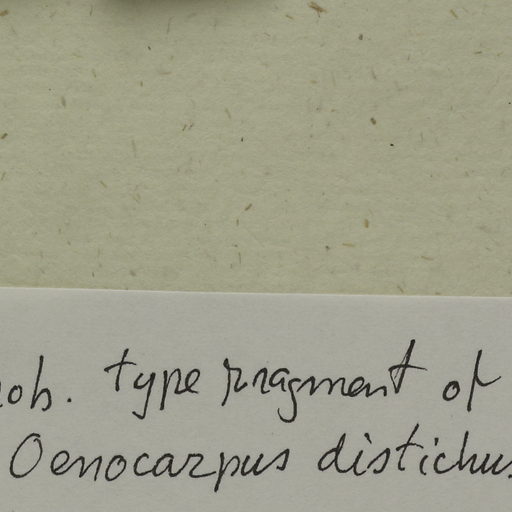 rob. type fragment of
Oenocarpus distichus